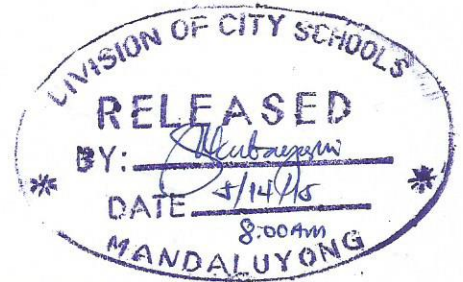 DIVISION OF CITY SCHOOLS
RELEASED
BY:
DATE 5/14/15
8:00AM
MANDALUYONG